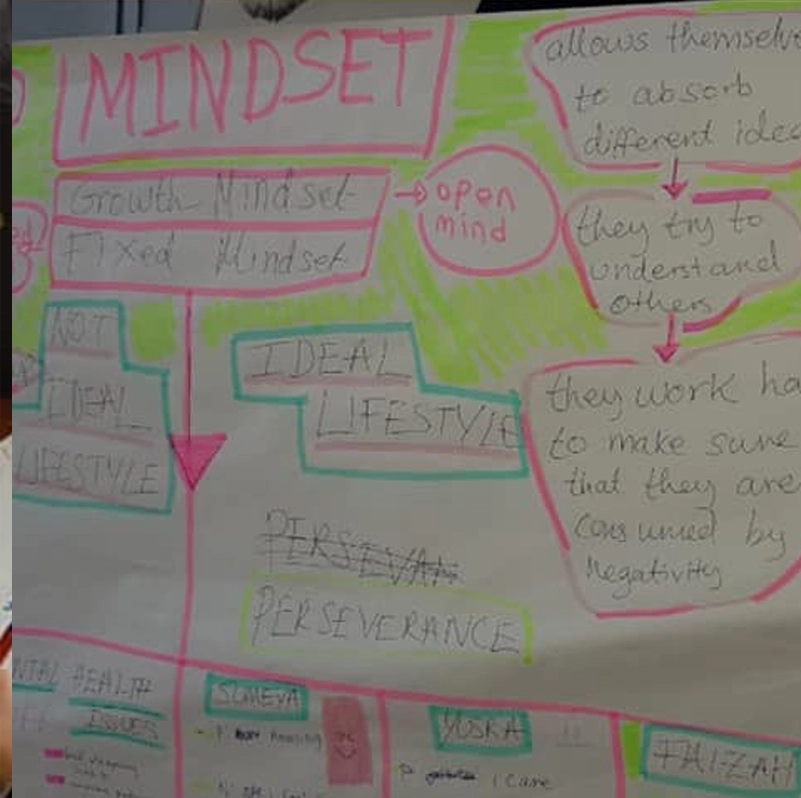 MINDSET
Growth Mindset
Fixed Mindset
→ open
mind
allows themselv
to absorb
different idea
they try to
understand
others
they work ha
to make sure
that they are
consumed by
Negativity
NOT
IDEAL
LIFESTYLE
IDEAL
LIFESTYLE
PERSEVAN
PERSEVERANCE
NTAL HEALTH
ISSUES
SUMEYA
YUSRA
i care
FAIZAH